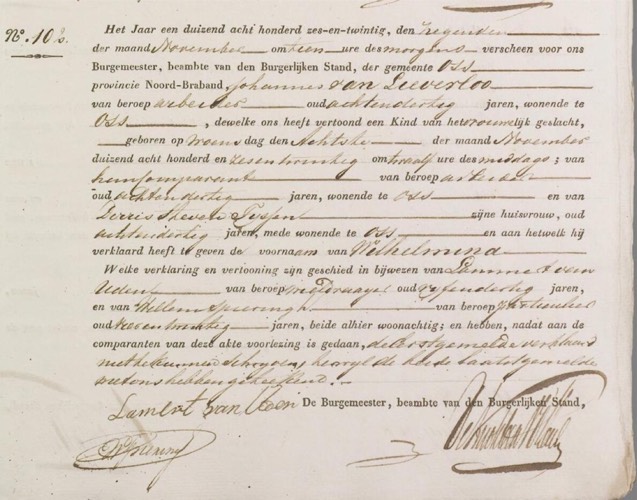 No. 102.
Het Jaar een duizend acht honderd zes-en-twintig, den negenden
der maand November om tien ure des morgens verscheen voor ons
Burgemeester, beambte van den Burgerlijken Stand, der gemeente Oss
provincie Noord-Braband, Johannes van Lieverloo
van beroep arbeider oud achtendertig jaren, wonende te
Oss, dewelke ons heeft vertoond een Kind van het vrouwelijk geslacht,
geboren op woensdag den Achtste der maand November
duizend acht honderd en zesentwintig om twaalf ure des middags; van
hem Comparant van beroep arbeider
oud achtendertig jaren, wonende te Oss en van
zijne huisvrouw, oud
achtendertig jaren, mede wonende te Oss en aan hetwelk hij
verklaard heeft te geven de voornaam van Wilhelmina
Welke verklaring en vertooning zijn geschied in bijwezen van Lammert van
Uden van beroep oud vijfendertig jaren,
en van Willem Spierings van beroep
oud jaren, beide alhier woonachtig; en hebben, nadat aan de
comparanten van deze akte voorlezing is gedaan, de Eerstgemelde verklaard
niet te kunnen Schryven, terwyl de beide laatstgemelde
met ons hebben geteekend.
Lamert van
De Burgemeester, beambte van den Burgerlijken Stand,